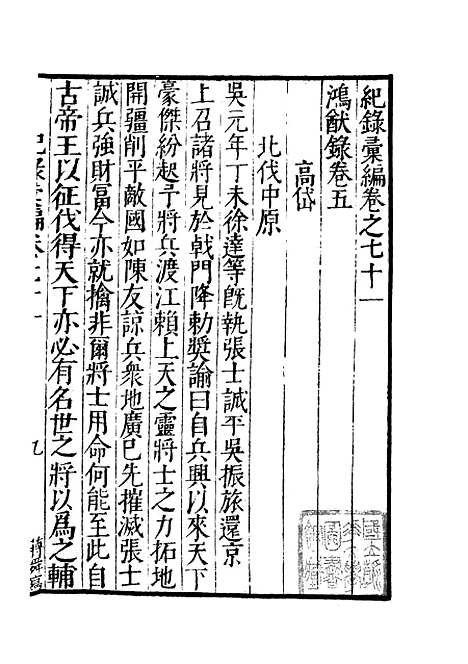 紀錄彙編卷之七十一
鴻猷錄卷五
高岱
北伐中原
吳元年丁未徐達等旣執張士誠平吳振旅還京
上召諸將見於戟門降勑奬諭曰自兵興以來天下
豪傑紛起予將兵渡江賴上天之靈將士之力拓地
開疆削平敵國如陳友諒兵衆地廣已先摧滅張士
誠兵強財冨今亦就擒非爾將士用命何能至此自
古帝王以征伐得天下亦必有名世之將以爲之輔